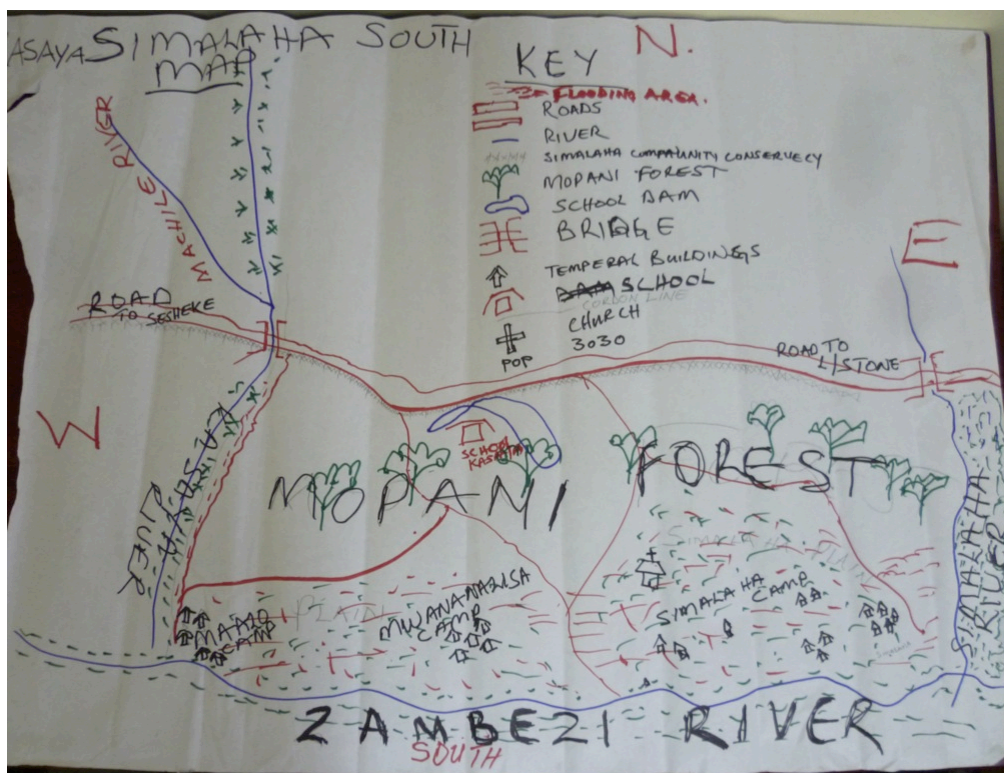 ASAYA SIMALAHA SOUTH
MAP
N.
KEY
FLOODING AREA.
ROADS
RIVER
SIMALAHA COMMUNITY CONSERVECY
MOPANI FOREST
SCHOOL DAM
BRIDGE
TEMPERAL BUILDINGS
SCHOOL
CORDON LINE
CHURCH
POP 3030
MACHILE RIVER
E
ROAD
TO SESHEKE
ROAD TO
L/STONE
W
RIVER
SCHOOL
MOPANI FOREST
SIMALAHA
RIVER
SIMALAHA
PLAIN
MWANAMAZISA
CAMP
SIMALAHA
CAMP
CAMP
ZAMBEZI RIVER
SOUTH